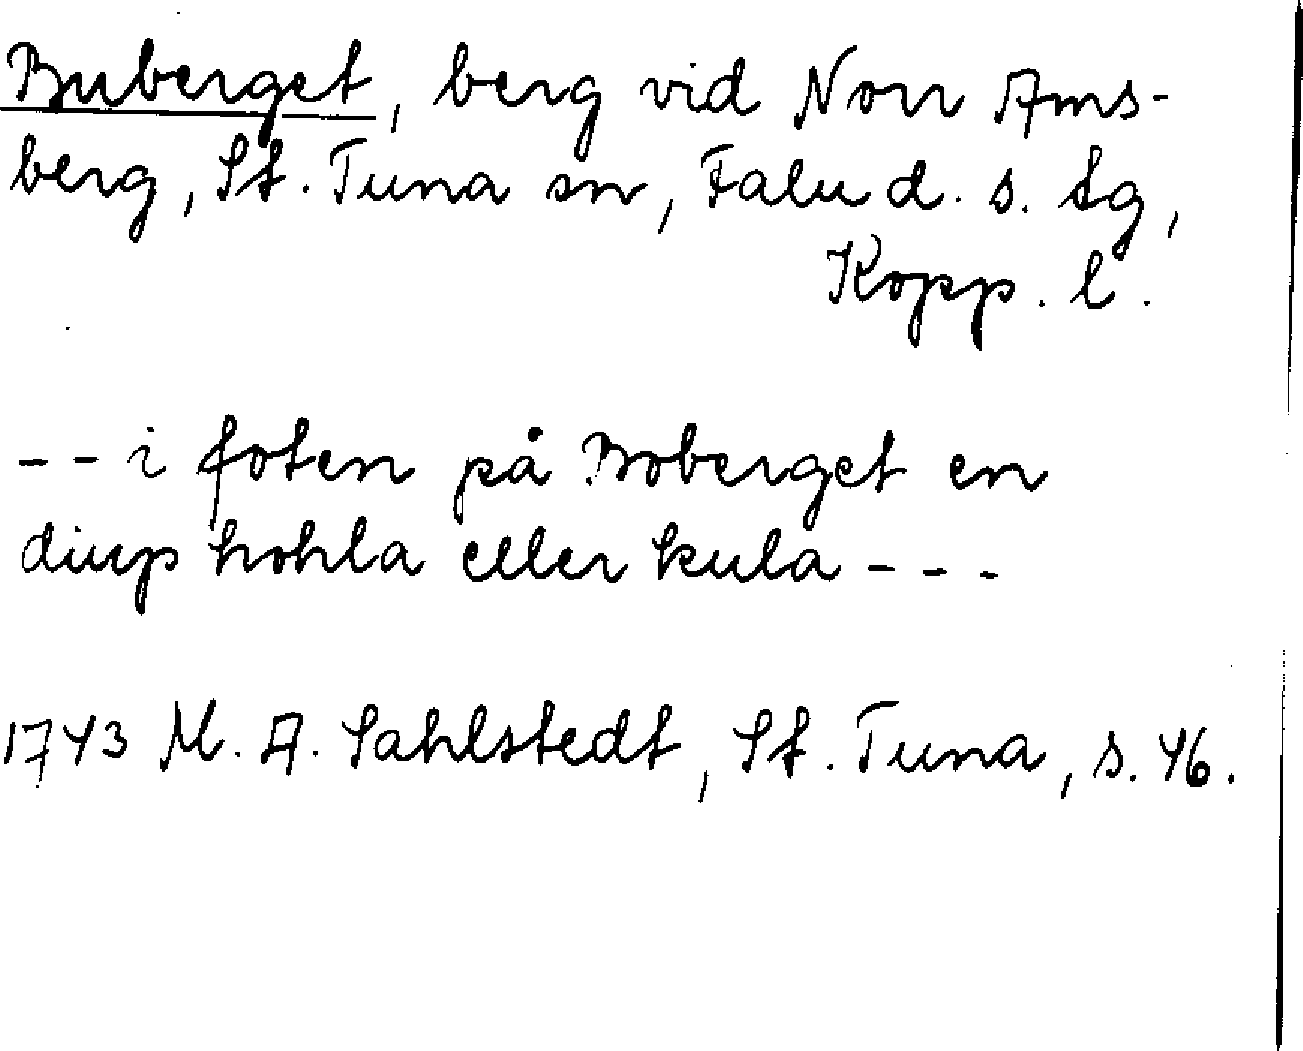 Buberget, berg vid Norr Ams-
berg, St. Tuna sn, Falu d. s. tg,
Kopp. l.
-- i foten på Boberget en
diup hohla eller kula ---
1743 M. A. Sahlstedt, St. Tuna, s. 46.